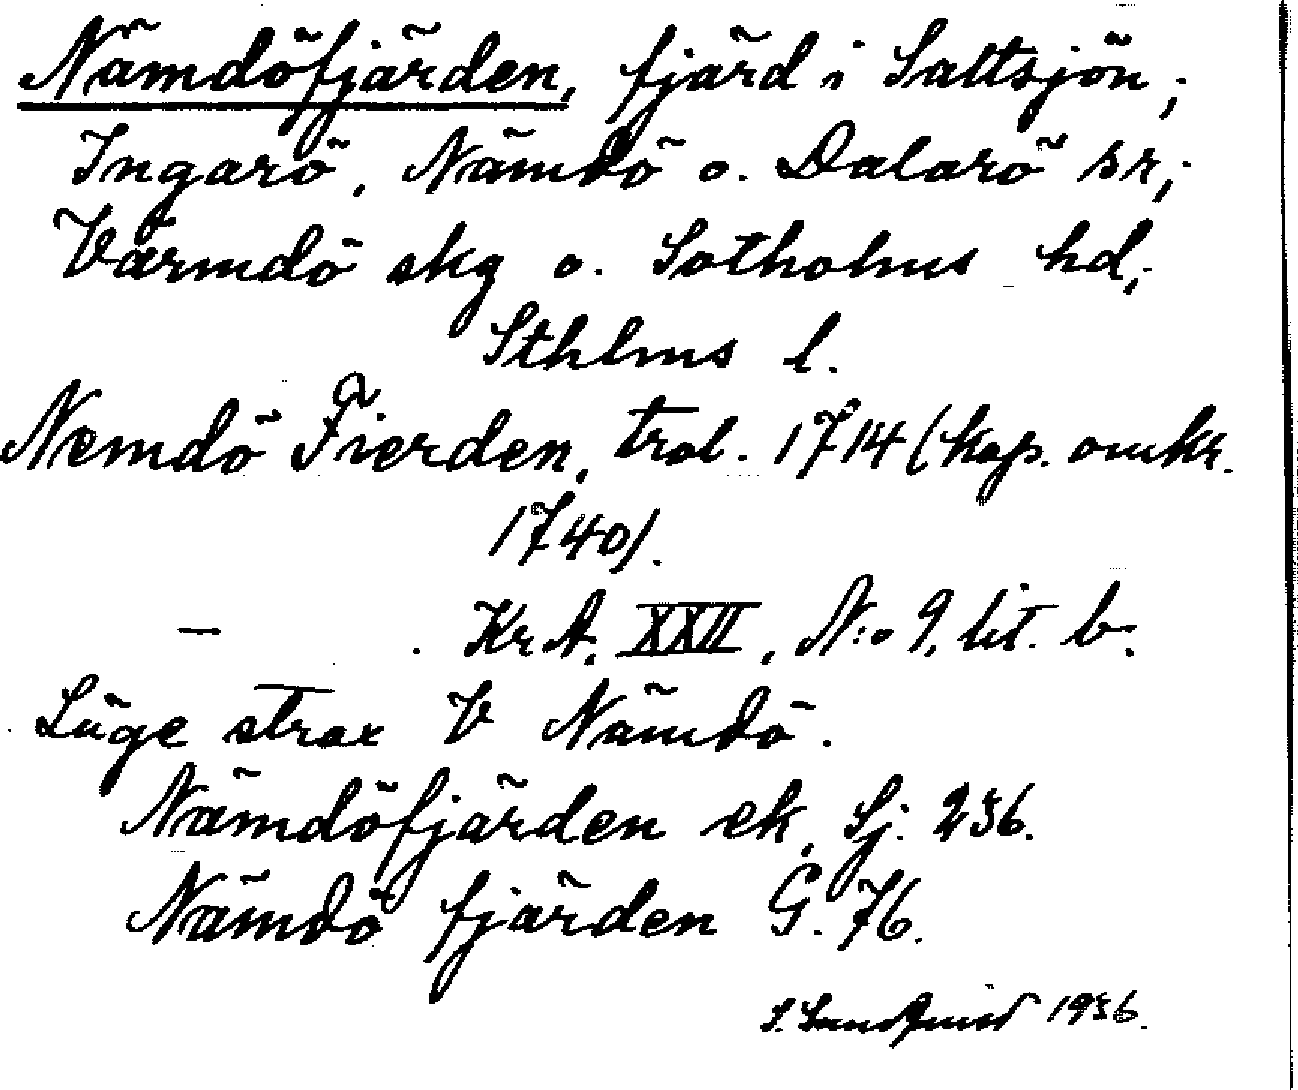 Nämdöfjärden, fjärd i Saltsjön;
Ingarö, Nämdö o. Dalarö sr;
Värmdö skg o. Sotholms hd;
Sthlms l.
Nemdö Fierden, trol. 1714 (kop. omkr.
1740).
— Kr A, XXII, N:o 9, lit. b.
Läge strax V Nämdö.
Nämdöfjärden ek, Sj. 236.
Nämdö fjärden G. 76.
S. Sundquist 1936.